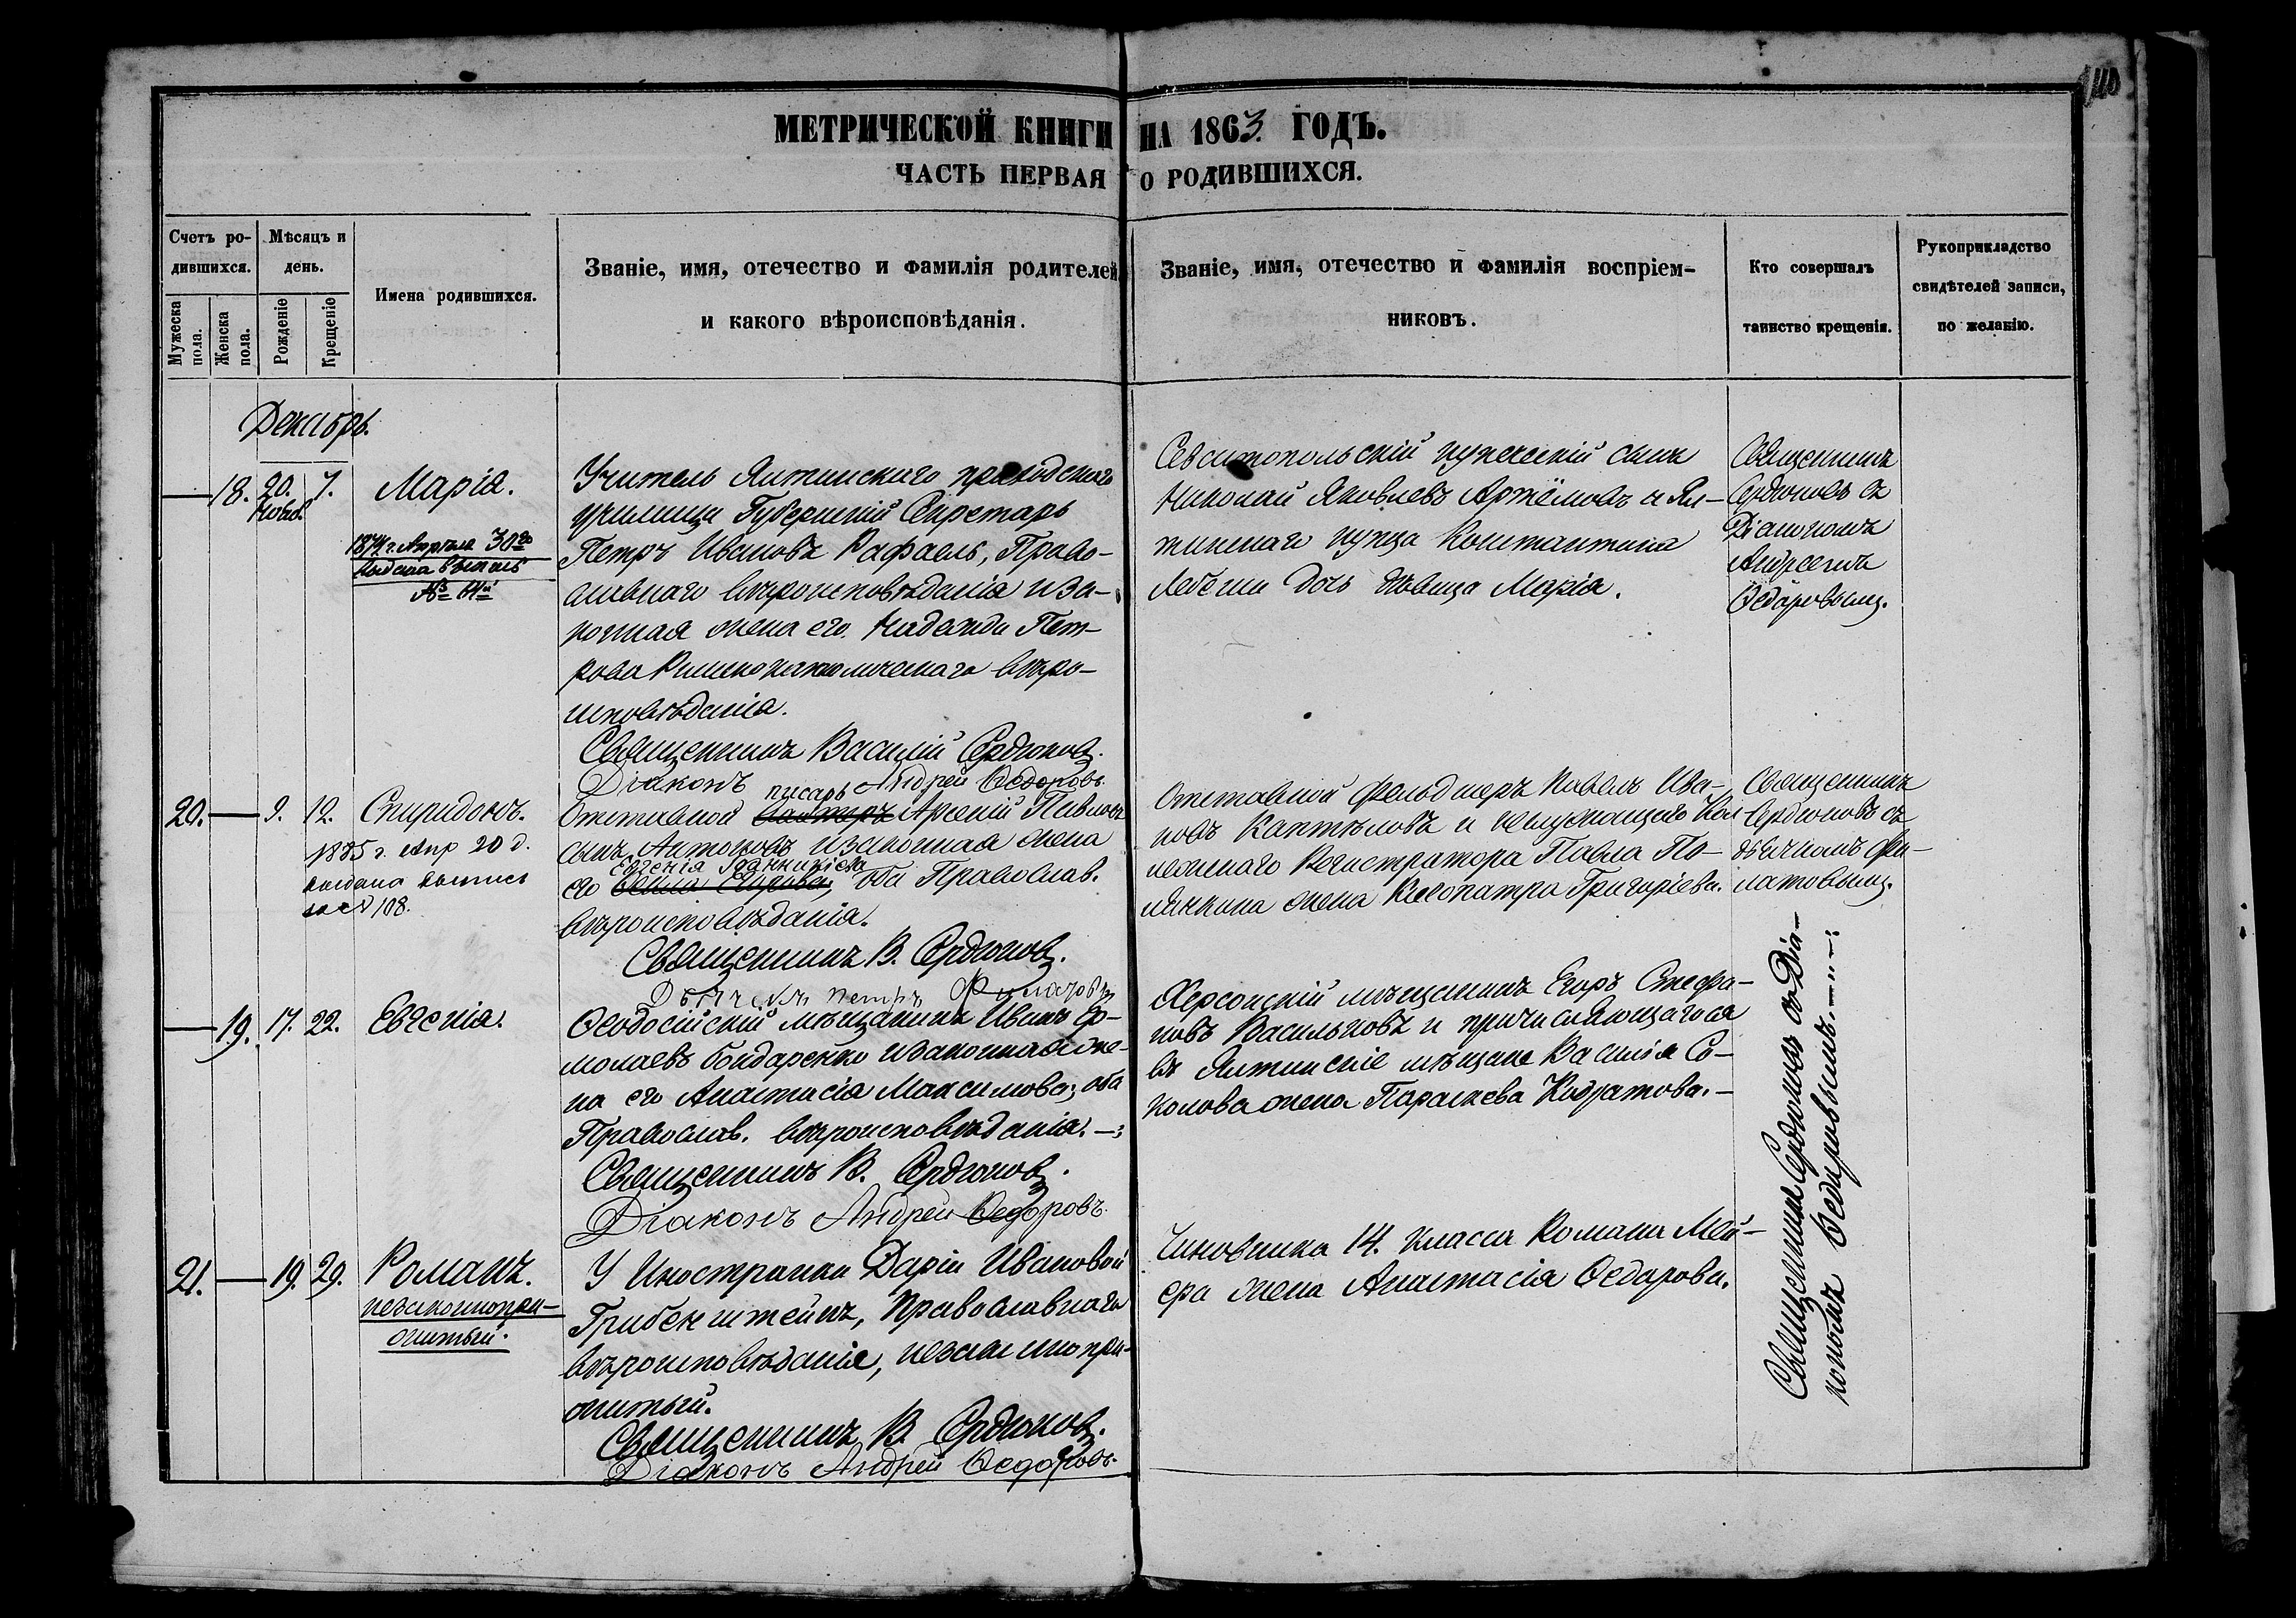 110
МЕТРИЧЕСКОЙ КНИГИ НА 1863 ГОДЪ.
ЧАСТЬ ПЕРВАЯ О РОДИВШИХСЯ.
Счетъ ро-
дившихся.
Мужеска
пола.
Женска
пола.
Мѣсяцъ и
день.
Рожденіе
Крещеніе
Имена родившихся.
Званіе, имя, отечество и фамилія родителей
и какого вѣроисповѣданія.
Званіе, имя, отечество и фамилія воспріем-
никовъ.
Кто совершалъ
таинство крещенія.
Рукоприкладство
свидѣтелей записи,
по желанію.
Декабрь.
18. 20. Нояб. 7.
Марія.
1874 г. Апрѣля 30го
выдана выпись
№
Учитель Ялтинскаго приходскаго
училища Губернскій Секретарь
Петръ Ивановъ Рафаель, Право-
славнаго вѣроисповѣданія и за-
конная жена его Надежда Пет-
рова Римско католическаго вѣро-
исповѣданія.
Священникъ Василій Сердюковъ.
Діаконъ Андрей Ѳедоровъ.
Севастопольскій купеческій сынъ
Николай Яковлевъ Артёмовъ и Ял-
тинскаго купца Константина
дочь дѣвица Марія.
Священникъ
Сердюковъ съ
Діакономъ
Андреемъ
Ѳедоровымъ.
20. — 9. 12.
Спиридонъ.
1885 г. Апр 20 д.
выдана выпись
за № 108.
писарь
Отставной Арсеній Павловъ
сынъ Антоновъ и законная жена
Евгенія
его оба Православ.
вѣроисповѣданія.
Священникъ В. Сердюковъ.
Дьячекъ Петръ Филатовъ
Отставной фельдшеръ Павелъ Ива-
новъ Каптѣловъ и неслужащаго Кол
лежскаго Регистратора Павла По-
жена Клеопатра Григоріева.
Священникъ
Сердюковъ съ
дьячкомъ Фи-
латовымъ.
— 19. 17. 22.
Евгенія.
Ѳеодосійскій мѣщанинъ Иванъ Ер-
молаевъ Бондаренко и законная же-
на его Анастасія Максимова; оба
Православ. вѣроисповѣданія.—:
Священникъ В. Сердюковъ.
Діаконъ Андрей Ѳедоровъ.
Херсонскій мѣщанинъ Егоръ Стефа-
новъ Васильковъ и причисляющагося
въ Ялтинскіе мѣщане Василія Со-
колова жена Параскева Кодратова.—
Священникъ Сердюковъ съ Діа-
кономъ Ѳедоровымъ.
21. — 19. 29.
Романъ.
незаконнопри-
житый.
У Иностранки Даріи Ивановой
Грибенштейнъ, Православнаго
вѣроисповѣданія, незаконнопри-
житый.
Священникъ В. Сердюковъ.
Діаконъ Андрей Ѳедоровъ.
Чиновника 14. класса Романа Мей-
ера жена Анастасія Ѳедорова.